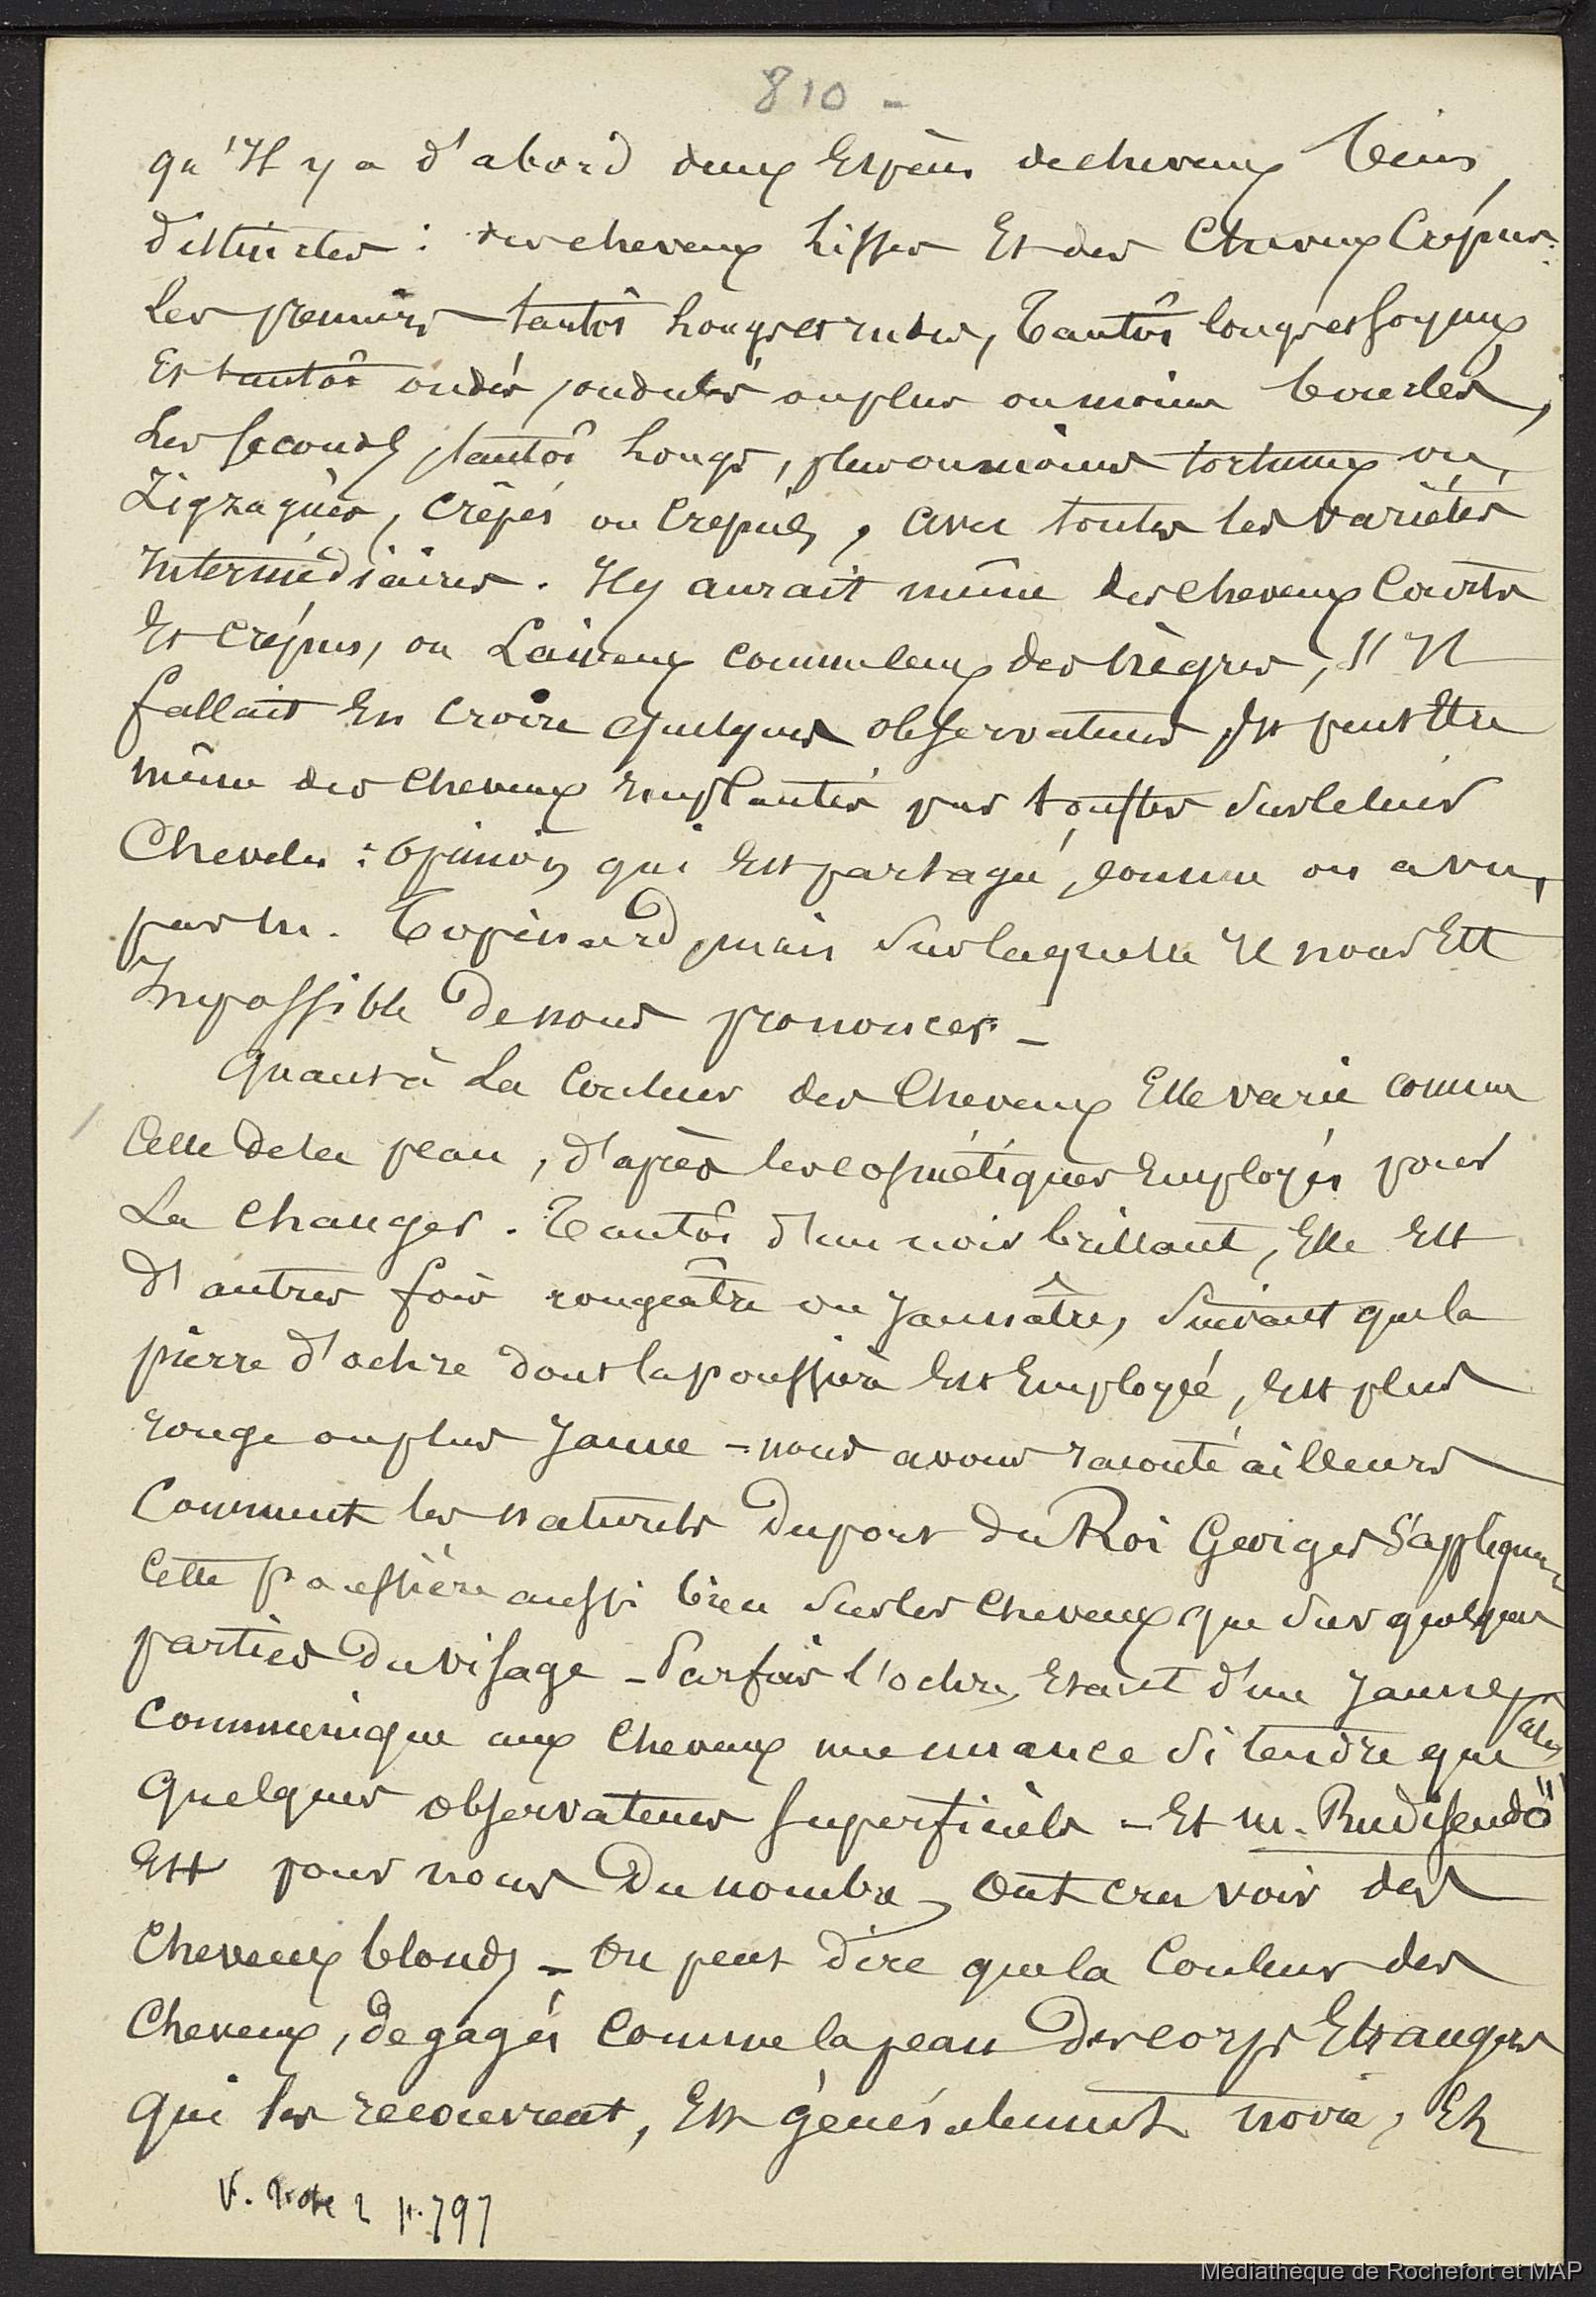 810 -
qu'Il y a d'abord deux Espèces de cheveux bien,
distinctes : des cheveux Lisses Et des Cheveux Crépus.
Les premiers tantôt Longs et rudes, Tantôt longs et soyeux
Et tantôt ondés, ondulés ou plus ou moins bouclés,
Les seconds, tantôt Longs, plus ou moins tortueux ou,
Zigzagués, Crêpés ou Crepus, avec toutes les variétés
Intermédiaires. Il y aurait même des cheveux Courts
Et crépus, ou Laineux comme ceux des Nègres, s'Il
fallait En croire quelques observateurs, Et peut Etre
même des cheveux Implantés par touffes sur le cuir
Chevelu : opinion qui Est partagée, comme on a vu,
par M. Topinard, mais sur laquelle Il nous Est
Impossible de nous prononcer -
Quant à La Couleur des Cheveux Elle varie comme
Celle de la peau, d'après les cosmétiques Employés pour
La changer. Tantôt d'un noir brillant, Elle Est
d'autres fois rougeâtre ou Jaunâtre, Suivant que la
pierre d'ochre dont la poussière Est Employée, Est plus
rouge ou plus Jaune - nous avons raconté ailleurs
Comment les naturels du port du Roi Georges S'appliquent
Cette poussière aussi bien sur les Cheveux que sur quelques
parties du visage - Parfois l'ochre, Etant d'un Jaune pâle,
Communique aux Cheveux une nuance si tendre que
Quelques observateurs superficiels - Et M. Rudesindo "
Est pour nous du nombre, ont cru voir des
Cheveux blonds - On peut dire que la Couleur des
Cheveux, degagés Comme la peau Des corps Etrangers
qui les recouvrent, Est généralement noire, Et
V. Note 2 p. 797
Médiathèque de Rochefort et MAP